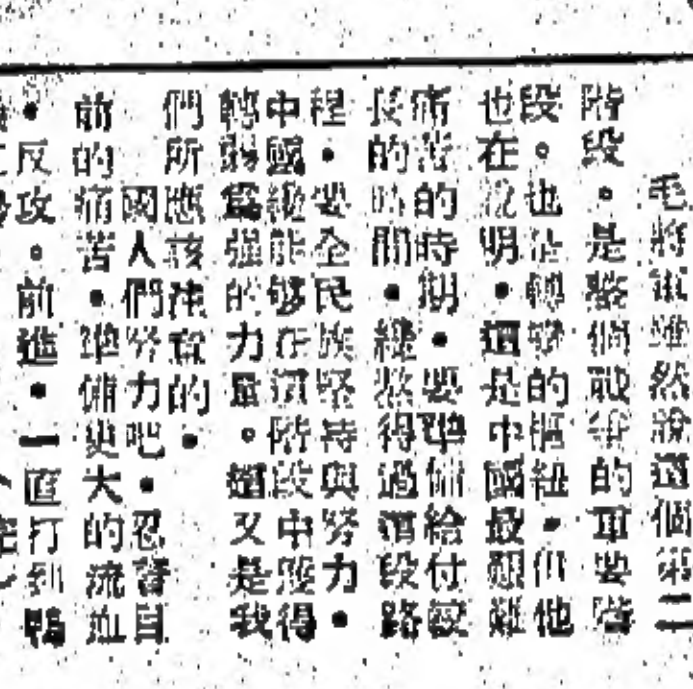 毛將軍雖然說這個第二
階段。是整個戰爭的重要階
段。也是轉變的樞紐。但他
也在說明。這是中國最艱難
痛苦的時期。要準備給付較
長的時間。繼熬得過這段路
程。要全民族堅持與努力。
中國纔能够在這階段中獲得
轉弱爲强的力量。這又是我
們所應該注意的。
國人們努力吧。忍耐目
前的痛苦。準備更大的流血
反攻。前進。一直打到鴨